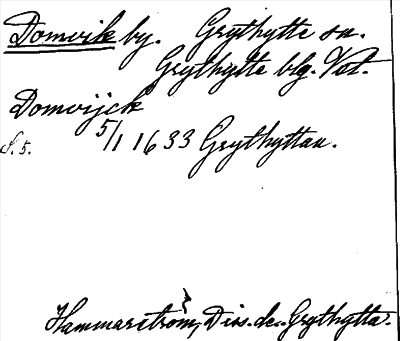 Domvik by. Grythytte sn.
Grythytte blg. Vstm.
Domvijck
S. 5. 5/1 1633 Grythyttan.
Hammarström, Diss. de Grythytta.